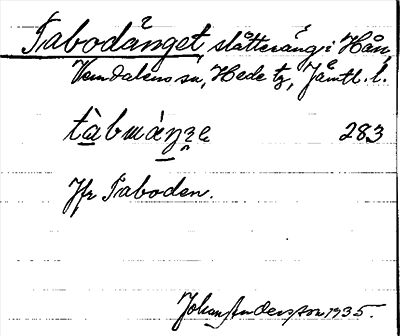 Tabodånget, slåtteräng i Hån,
Vemdalens sn, Hede tg, Jämtl. l.
tàbmáŋʒe 283
Jfr Taboden.
Johan Andersson 1935.